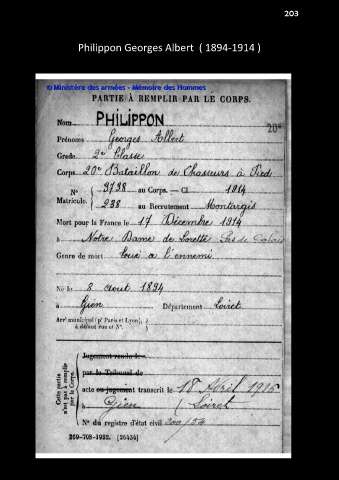 203
Philippon Georges Albert ( 1894-1914 )
© Ministère des armées - Mémoire des Hommes
PARTIE À REMPLIR PAR LE CORPS.
Nom PHILIPPON
20e
Prénoms Georges Albert
Grade 2e Classe
Corps 20e Bataillon de Chasseurs à Pied
N° 3738 au Corps. — Cl 1914
Matricule. 238 au Recrutement Montargis
Mort pour la France le 17 Décembre 1914
à Notre Dame de Lorette Pas de Calais
Genre de mort tué à l'ennemi
Né le 8 Aout 1894
à Gien Département Loiret
Arr' municipal (p' Paris et Lyon),
à défaut rue et N°.
Cette partie
n'est pas à remplir
par le Corps.
Jugement rendu le
par le Tribunal de
acte ou jugement transcrit le 18 Avril 1915
à Gien (Loiret
N° du registre d'état civil 200/54
269-708-1922. [26434]